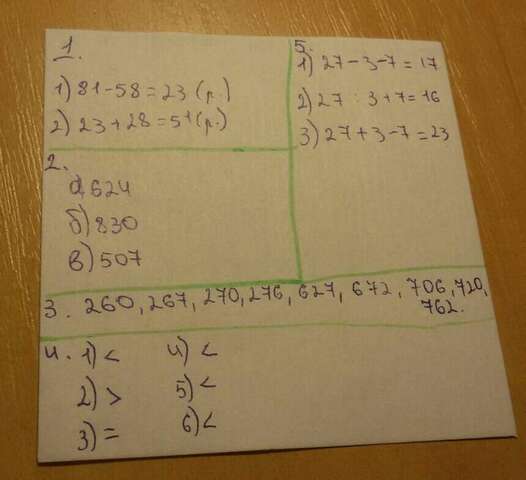 1.
1) 81-58=23 (р.)
2) 23+28=51 (р.)
2.
а) 624
б) 830
в) 507
3. 260, 267, 270, 276, 627, 672, 706, 720,
762.
4. 1) <
2) >
3) =
4) <
5) <
6) <
5.
1) 27-3-7=17
2) 27 : 3+7=16
3) 27+3-7=23